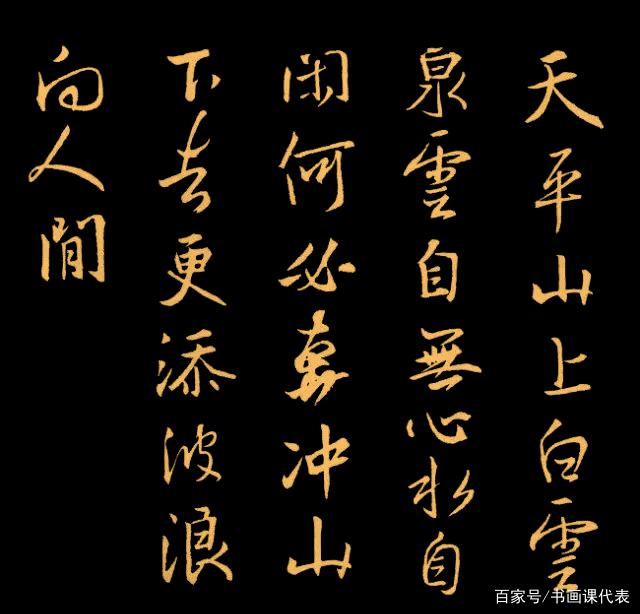 天平山上白雲
泉雲自無心水自
閑何必奔冲山
下去更添波浪
向人閒
百家号/书画课代表